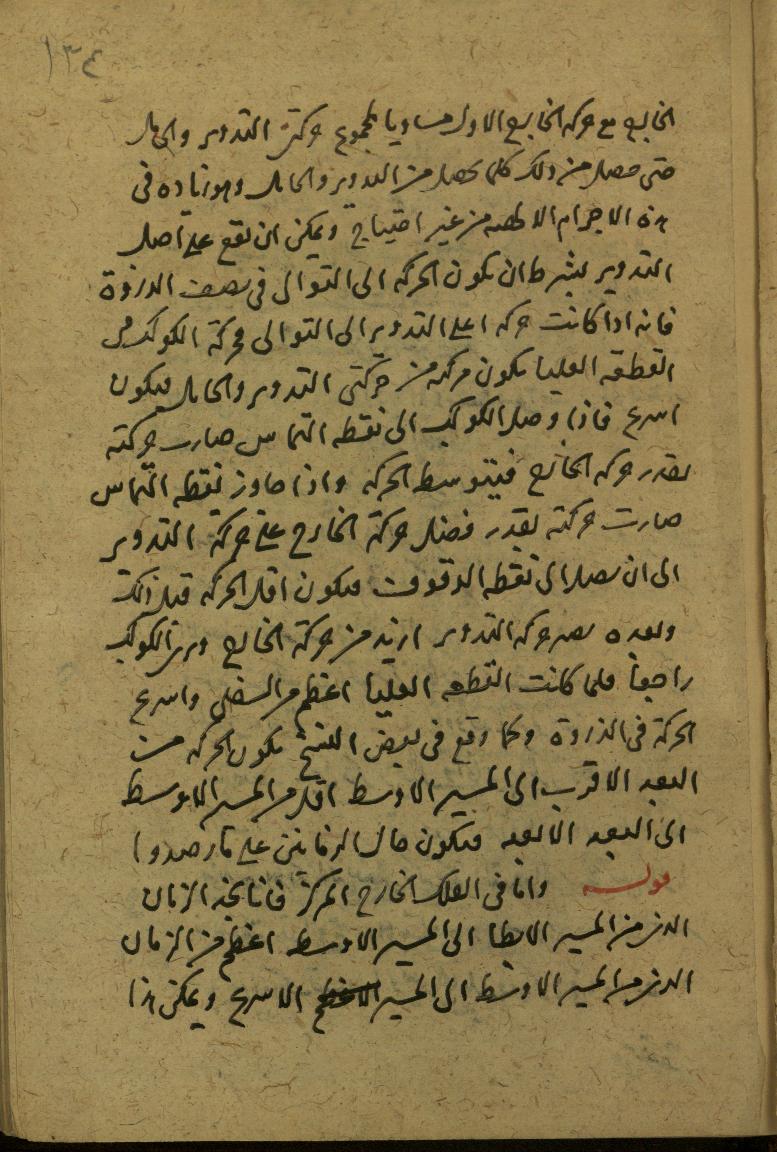 ١٣٤
الخارج مع حركة الخارج الاول مساويا لمجموع حركتى التدوير والحامل
حتى حصل من ذلك كلما يحصل من التدوير والحامل وهو زياده فى
هذه الاجرام الاطهه من غير احتياج ويمكن ان يقع على اصل
التدوير بشرط ان يكون الحركه الى التوالى فى نصف الذروة
فانه اذا كانت حركه اعلى التدوير الى التوالى فحركة الكوكب فى
القطعه العليا يكون مركبه من حركتى التدوير والحامل فيكون
اسرع فاذا وصل الكوكب الى نقطه التماس صارت حركته
بقدر حركه الخارج فيتوسط الحركه واذا جاوز نقطه التماس
صارت حركته بقدر فضل حركة الخارج على حركة التدوير
الى ان يصل الى نقطه الوقوف فيكون اقل الحركه قبل ذلك
وبعده يصير حركه التدوير ازيد من حركة الخارج ويرى الكوكب
راجعا فلما كانت القطعه العليا اعظم من السفلى واسرع
الحركة فى الذروة وكما وقع فى بعض النسخ يكون الحركه من
البعد الاقرب الى المسير الاوسط اقل من المسير الاوسط
الى البعد الابعد فيكون حال الزمانين على ما رصدوا
قوله واما فى الفلك الخارج المركز فانا نجد الزمان
الذى من المسير الابطا الى المسير الاوسط اعظم من الزمان
الذى من المسير الاوسط الى المسير الاسرع ويمكن هذا